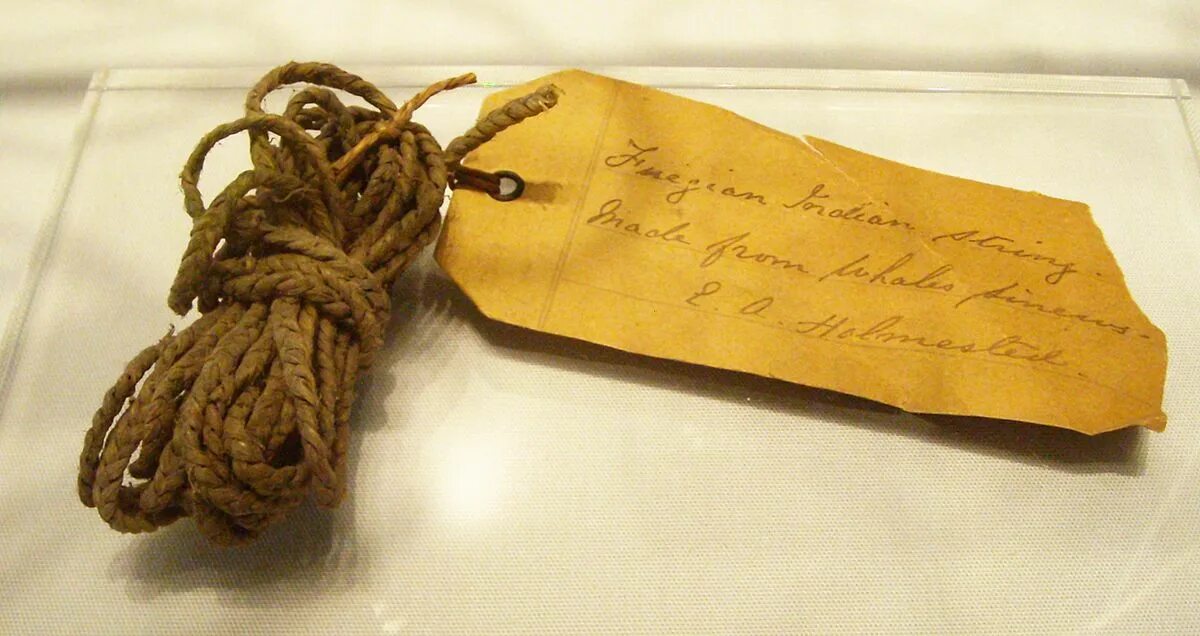 Fuegian Indian string.
Made from Whales sinews.
E. A. Holmested.